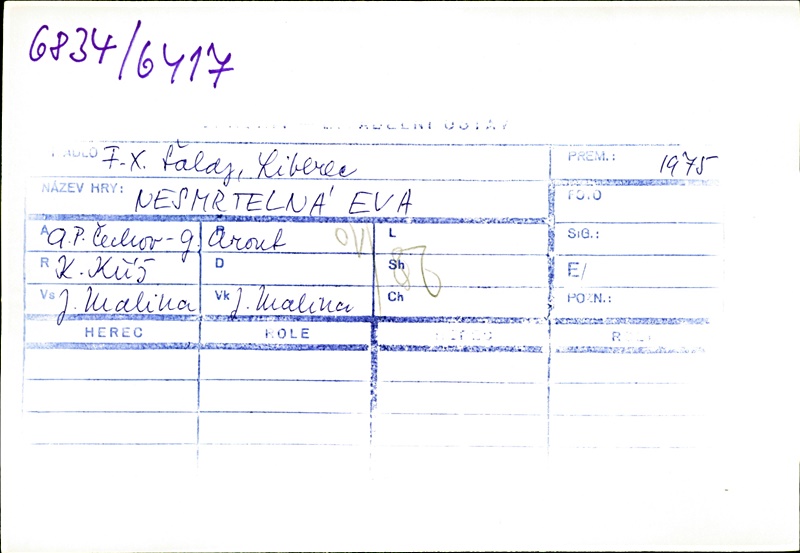 6834/6417
DIVADLO F.X. Šaldy, Liberec PREM.: 1975
NÁZEV HRY: NESMRTELNÁ EVA FOTO
A A.P. Čechov - G. Arout L SIG.:
R K. Kříž D Sh E/
Vs J. Malina Vk J. Malina Ch POZN.:
HEREC ROLE HEREC ROLE